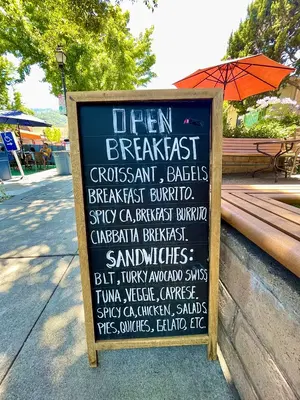 OPEN
BREAKFAST
CROISSANT, BAGELS,
BREAKFAST BURRITO.
SPICY CA, BREKFAST BURRITO,
CIABBATTA BREKFAST.
SANDWICHES:
BLT, TURKY AVOCADO SWISS
TUNA, VEGGIE, CAPRESE.
SPICY CA, CHICKEN, SALADS
PIES, QUICHES, GELATO, ETC